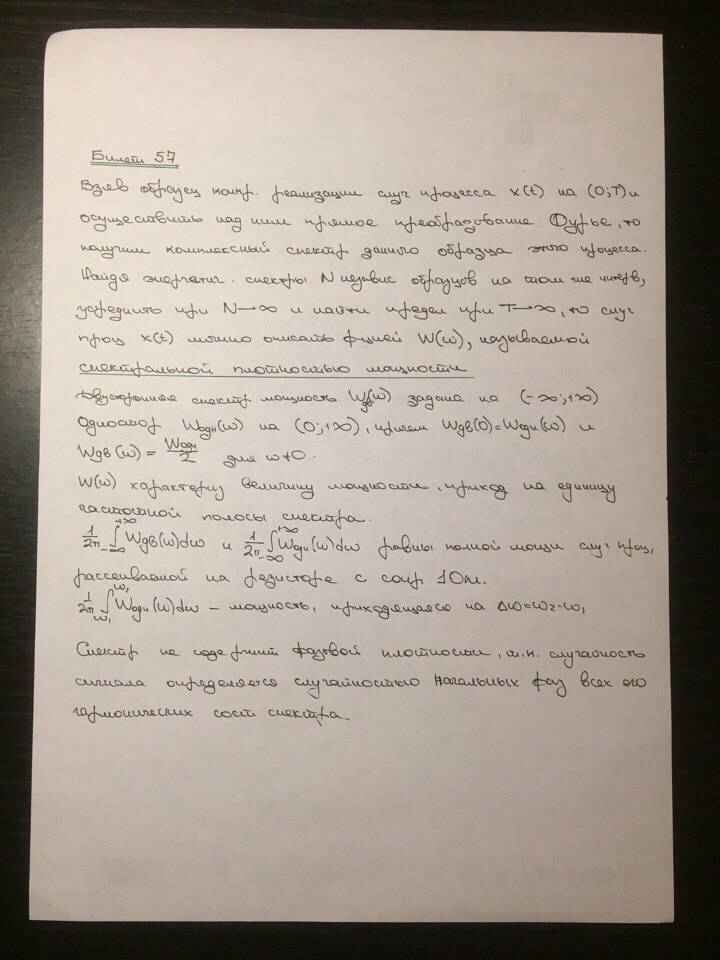 Билет 57
Взяв образец конкр. реализации случ процесса x(t) на (0;T) и
осуществить над ним прямое преобразование Фурье, то
получим комплексный спектр данного образца этого процесса.
Найдя энергетич. спектры N независ образцов на том же интерв,
усреднить при N→∞ и найти предел при T→∞, то случ
проц x(t) можно описать ф-цией W(ω), называемой
спектральной плотностью мощности
Двусторонняя спектр мощность Wдв(ω) задана на (-∞;+∞)
Одностор Wодн(ω) на (0;+∞), причем Wдв(0)=Wодн(ω) и
Wдв(ω) = Wодн/2 для ω≠0.
W(ω) характериз величину мощности, приход на единицу
частотной полосы спектра.
1/2π ∫_{-∞}^{+∞} Wдв(ω)dω и 1/2π ∫_{-∞}^{+∞} Wодн(ω)dω равны полной мощн случ проц,
рассеиваемой на резисторе с сопр 1 Ом.
1/2π ∫_{ω₁}^{ω₁} Wодн(ω)dω – мощность, приходящаяся на Δω=ω₂-ω₁
Спектр не содержит фазовой плотности, т.к. случайность
сигнала определяется случайностью начальных фаз всех его
гармонических сост спектра.